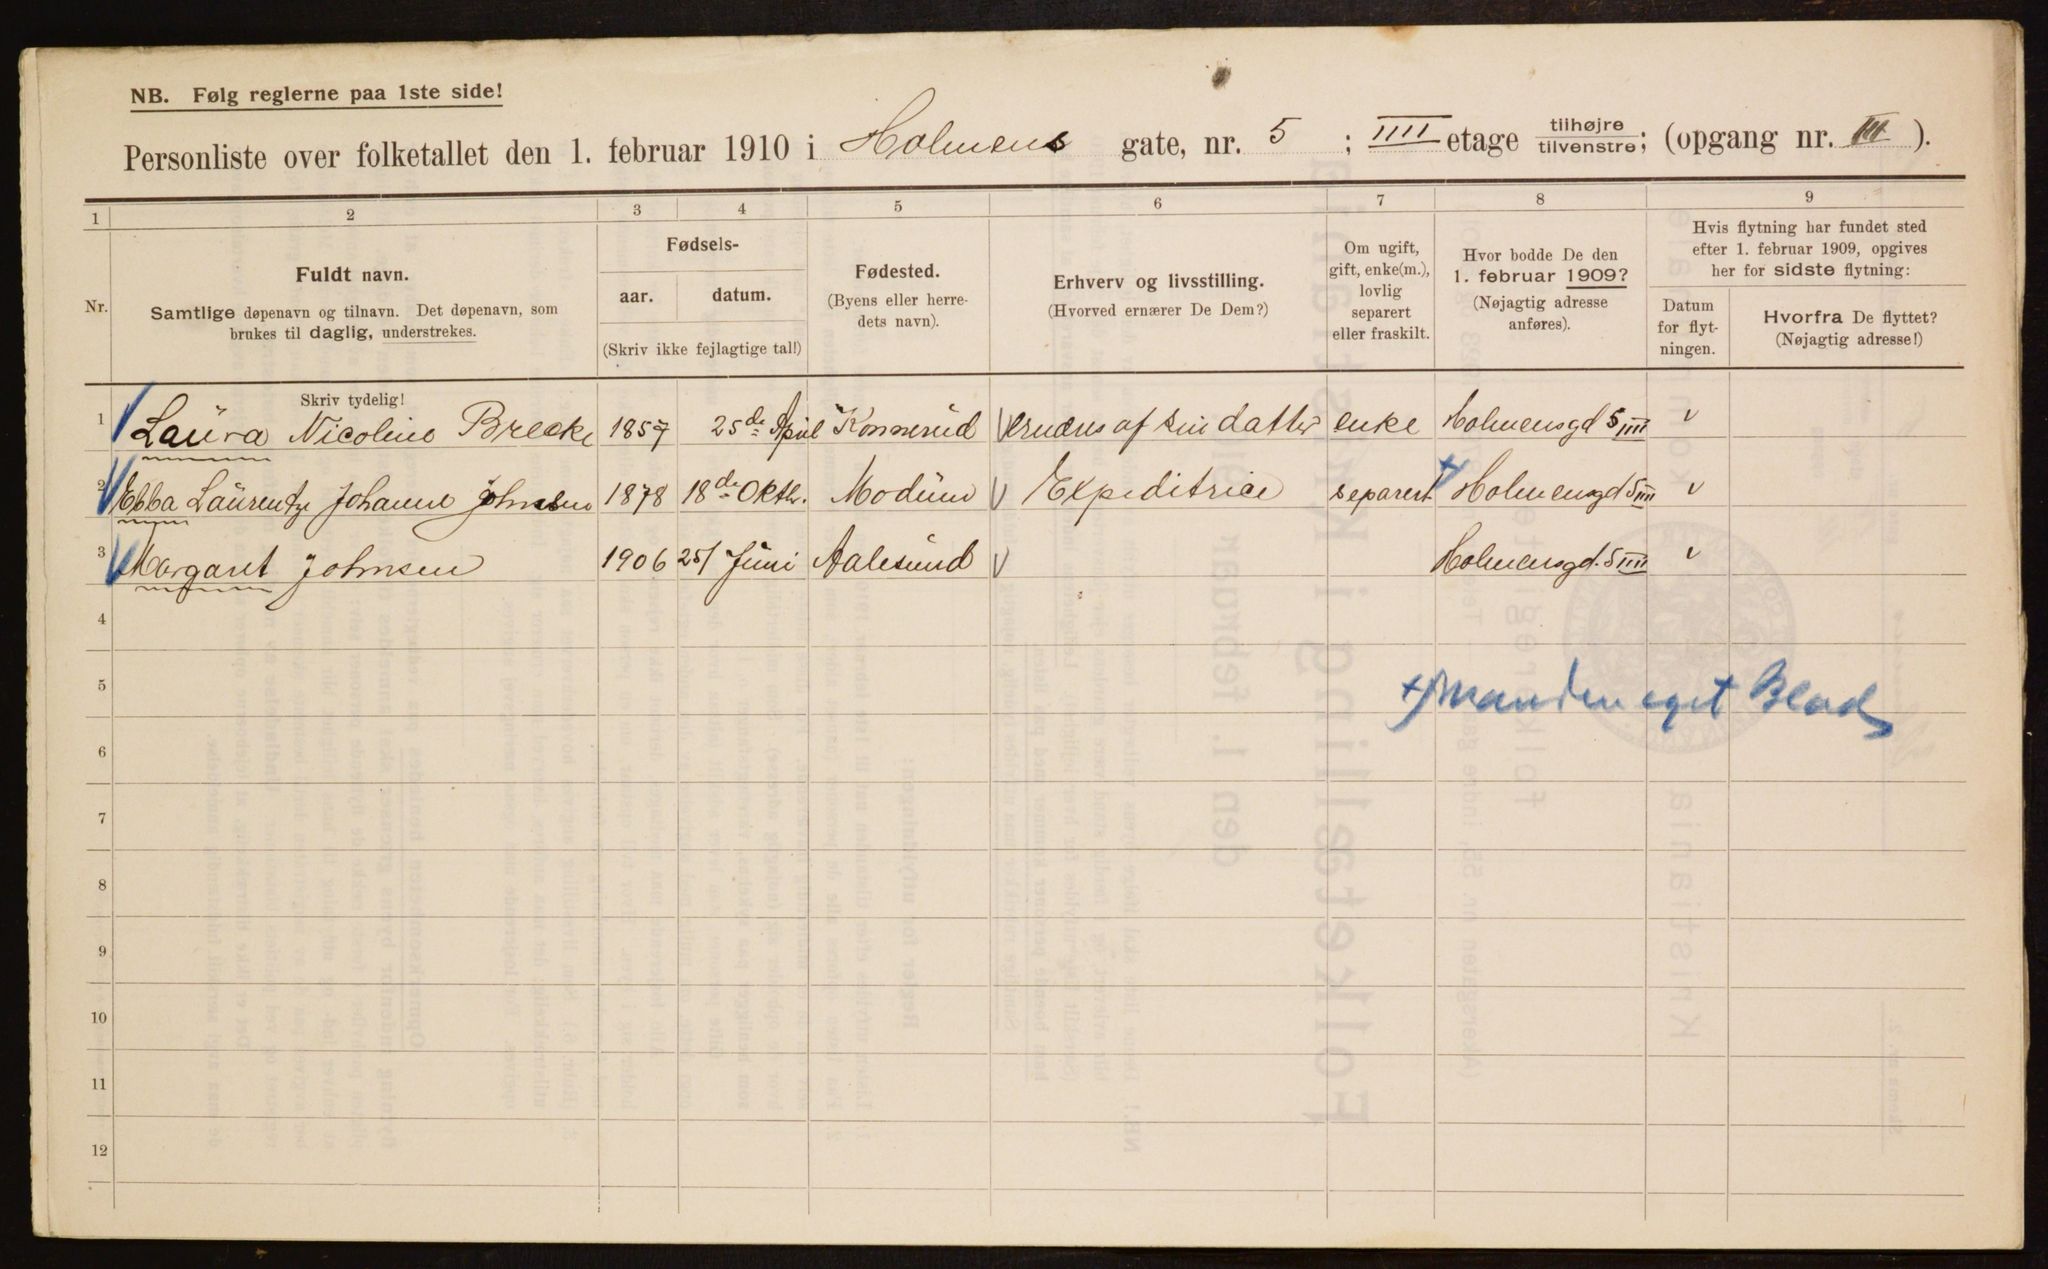 NB. Følg reglerne paa 1ste side!
Personliste over folketallet den 1. februar 1910 i Holmens gate, nr. 5 ; IIII etage tilhøjre tilvenstre; (opgang nr. III ).
1 2 3 4 5 6 7 8 9
Nr.
Fuldt navn.
Samtlige døpenavn og tilnavn. Det døpenavn, som
brukes til daglig, understrekes.
Skriv tydelig!
Fødsels-
aar. datum.
(Skriv ikke fejlagtige tal!)
Fødested.
(Byens eller herre-
dets navn).
Erhverv og livsstilling.
(Hvorved ernærer De Dem?)
Om ugift,
gift, enke(m.),
lovlig
separert
eller fraskilt.
Hvor bodde De den
1. februar 1909?
(Nøjagtig adresse
anføres).
Hvis flytning har fundet sted
efter 1. februar 1909, opgives
her for sidste flytning:
Datum
for flyt-
ningen.
Hvorfra De flyttet?
(Nøjagtig adresse!)
1 Laura Nicoline Brecke 1857 25de April Konnerud ernæres af sin datter enke Holmensgd 5 IIII
2 Ebba Laurentze Johanne Johnsen 1878 18de Oktbr. Modum Expeditrice separert Holmensgd 5 IIII
3 Margaret Johnsen 1906 25/ Juni Aalesund Holmensgd. 5 IIII
4
5 +) Manden eget Blad
6
7
8
9
10
11
12